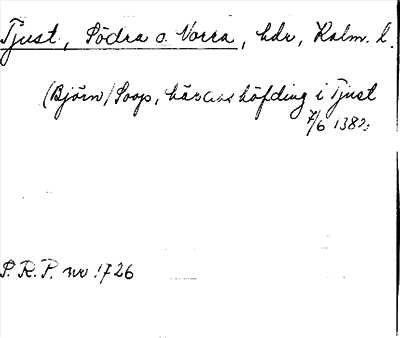 Tjust, Södra o. Norra, hdr, Kalm. l.
(Björn) Soop, häradshöfding i Tjust
7/6 1382.
P.R.P. nr 1726